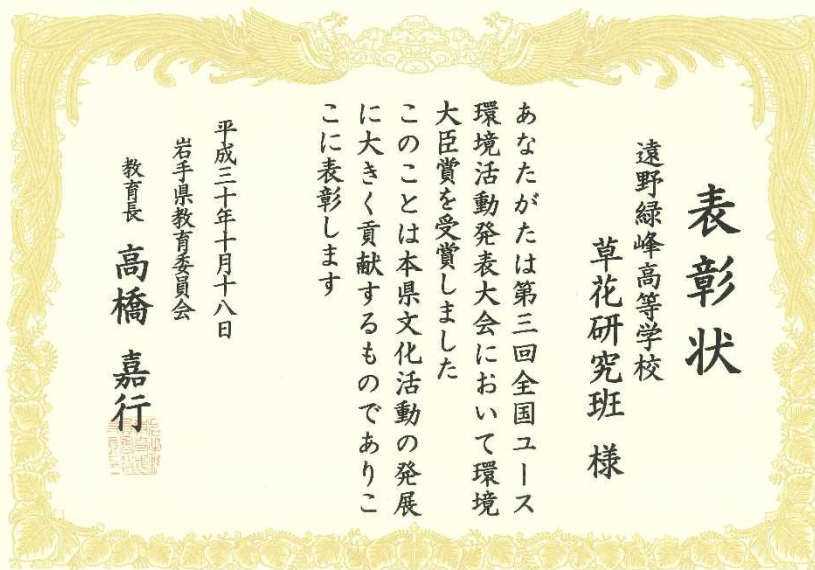 表彰状
遠野緑峰高等学校
草花研究班 様
あなたがたは第三回全国ユース
環境活動発表大会において環境
大臣賞を受賞しました
このことは本県文化活動の発展
に大きく貢献するものでありこ
こに表彰します
平成三十年十月十八日
岩手県教育委員会
教育長 高橋 嘉行